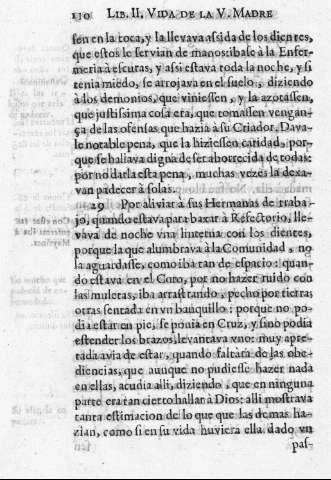 110 LIB. II. VIDA DE LA V. MADRE
sen en la toca, y la llevava assida de los dientes,
que estos le servian de manos: ibase à la Enfer-
meria à escuras, y assi estava toda la noche, y si
tenia miedo, se arrojava en el suelo, diziendo
à los demonios, que viniessen, y la azotassen,
que justissima cosa era, que tomassen vengan-
ça de las ofensas que hazia à su Criador. Dava-
le notable pena, que la hiziessen caridad, por-
que se hallava digna de ser aborrecida de todas:
por no darla esta pena, muchas vezes la dexa-
van padecer à solas.
29 Por aliviar à sus Hermanas de traba-
jo, quando estava para baxar à Refectorio, lle-
vava de noche vna linterna con los dientes,
porque la que alumbrava à la Comunidad, no
la aguardasse, como iba tan de espacio: quan-
do estava en el Coro, por no hazer ruido con
las muletas, iba arrastrando, pecho por tierra;
otras sentada en vn banquillo: porque no po-
dia estàr en pie, se ponia en Cruz, y sino podia
estender los brazos, levantava vno: muy apre-
tada avia de estar, quando faltara de las obe-
diencias, que aunque no pudiesse hazer nada
en ellas, acudia alli, diziendo, que en ninguna
parte era tan cierto hallar à Dios: alli mostrava
tanta estimacion de lo que las demas ha-
zian, como si en su vida huviera ella dado vn
pas-